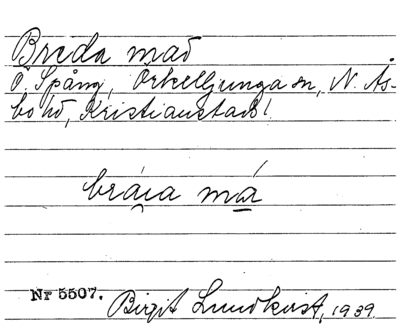 Breda mad
Ö. Spång, Örkelljunga sn, N. Ås-
bo hd, Kristianstads l.
bráįa má
Nr 5507. Birgit Lundkvist, 1939.